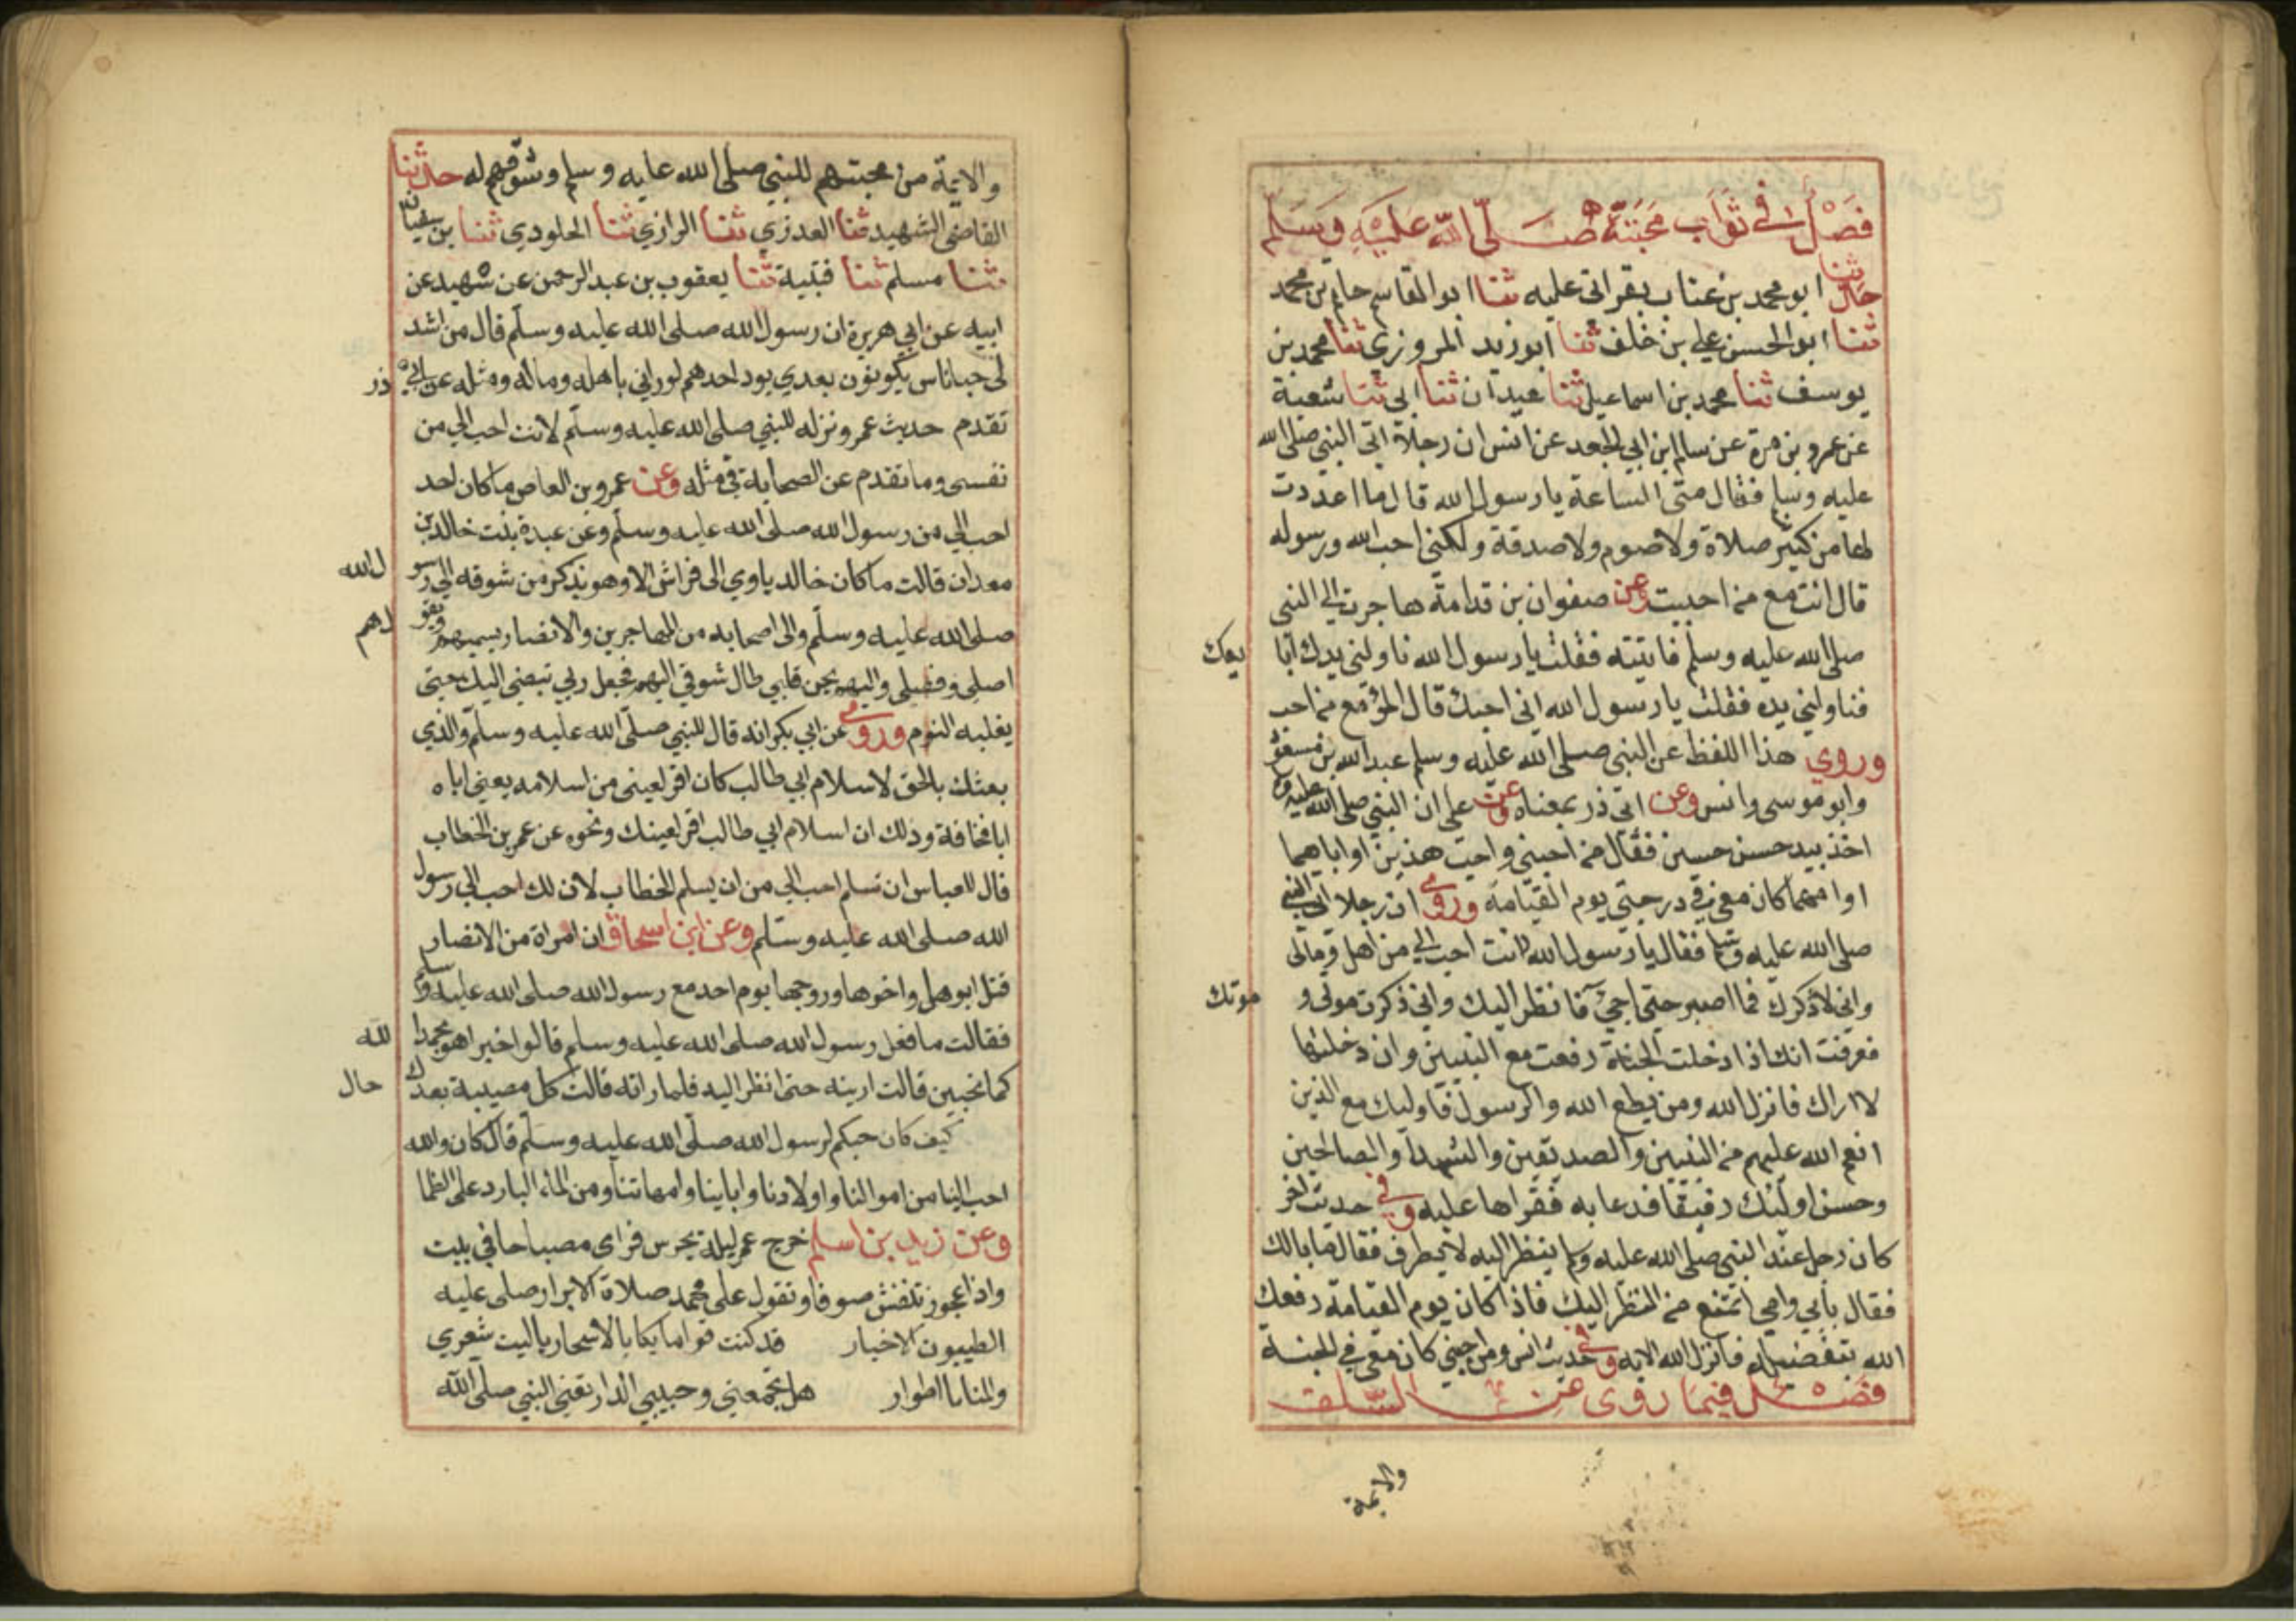 فصل في ثواب محبته صلى الله عليه وسلم
حدثنا ابو محمد بن عتاب بقراتى عليه ثنا ابو القاسم حاتم بن محمد
ثنا ابو الحسن علي بن خلف ثنا ابو زيد المروزي ثنا محمد بن
يوسف ثنا محمد بن اسماعيل ثنا عبدان ثنا ابى ثنا شعبة
عن عمرو بن مرة عن سالم ابن ابي الجعد عن انس ان رجلا اتى النبي صلى الله
عليه وسلم فقال متى الساعة يا رسول الله قال ما اعددت
لها من كثير صلاة ولا صوم ولا صدقة ولكني احب الله ورسوله
قال انت مع من احببت وعن صفوان بن قدامة هاجرت الى النبي
صلى الله عليه وسلم فاتيته فقلت يا رسول الله ناولني يدك ابا يعك
فناولني يده فقلت يا رسول الله اني احبك قال المرؤ مع من احب
وروي هذا اللفظ عن النبي صلى الله عليه وسلم عبد الله بن مسعو
وابو موسى وانس وعن ابى ذر بمعناه وعن على ان النبي صلى الله عليه و
اخذ بيد حسن حسين فقال من احبني واحب هذين او اباهما
او امهما كان معي في درجتي يوم القيامة وروي ان رجلا اتى النبي
صلى الله عليه وسلم فقال يا رسول الله لانت احب الي من اهلى ومالى
واني لاذكرك فما اصبر حتى اجئ فانظر اليك واني ذكرت موتى و موتك
فعرفت انك اذا دخلت الجنة رفعت مع النبيين وان دخلتها
لا اراك فانزل الله ومن يطع الله والرسول فاوليك مع الذين
انعم الله عليهم من النبيين والصديقين والشهدا والصالحين
وحسن اوليك رفيقا فدعا به فقراها عليه وفي حديث اخر
كان رجل عند النبي صلى الله عليه وسلم ينظر اليه لا يطرف فقال ما بالك
فقال بأبي وامي اتمتع من النظر اليك فاذا كان يوم القيامة رفعك
الله بتفضيله فانزل الله الاية وفي حديث انس ومن احبني كان معي في الجنة
فصل فيما روى عن السلف
والايمة
والايمة من محبتهم للنبي صلى الله عليه وسلم وشوقهم له حدثنا
القاضي الشهيد ثنا العذري ثنا الرازي ثنا الجلودي ثنا بن سفيان
ثنا مسلم ثنا قتيبة ثنا يعقوب بن عبد الرحمن عن سهيل عن
ابيه عن ابي هريرة ان رسول الله صلى الله عليه وسلم قال من اشد
لى حبا ناس يكونون بعدي يود احدهم لو راني باهله وماله ومثله عن ابي ذر
تقدم حديث عمر ونزله للنبي صلى الله عليه وسلم لانت احب الي من
نفسى وما تقدم عن الصحابة في مثله وعن عمرو بن العاص ما كان احد
احب الي من رسول الله صلى الله عليه وسلم وعن عبدة بنت خالد بن
معدان قالت ما كان خالد ياوي الى فراش الا وهو يذكر من شوقه الي رسو ل الله
صلى الله عليه وسلم والى اصحابه من المهاجرين والانصار يسميهم ويقو لهم
اصلى وفصيلى واليهم يحن قلبي طال شوقي اليهم فعجل ربي تبضى اليك حتى
يغلبه النوم وروي عن ابي بكر انه قال للنبي صلى الله عليه وسلم والذي
بعثك بالحق لاسلام ابي طالب كان اقر لعيني من اسلامه يعني اباه
ابا قحافة وذلك ان اسلام ابي طالب اقر لعينك ونحوه عن عمر بن الخطاب
قال للعباس ان تسلم احب الي من ان يسلم الخطاب لان لك احب الي رسول
الله صلى الله عليه وسلم وعن ابن اسحاق ان امراة من الانصار
قتل ابوها واخوها وزوجها يوم احد مع رسول الله صلى الله عليه وسلم
فقالت ما فعل رسول الله صلى الله عليه وسلم قالوا خيرا هو بحمد الله
كما تحبين قالت ارينه حتى انظر اليه فلما راته قالت كل مصيبة بعدك حال
كيف كان حبكم لرسول الله صلى الله عليه وسلم قال كان والله
احب الينا من اموالنا واولادنا وابأينا وامهاتنا ومن الماء البارد على الظما
وعن زيد بن اسلم خرج عمر ليلة يحرس فراى مصباحا في بيت
واذا عجوز تنفش صوفا وتقول على محمد صلاة الابرار صلى عليه
الطيبون الاخيار قد كنت قواما بكا بالاسحار ياليت شعري
والمنايا اطوار هل تجمعني وحبيبي الدار تعني النبي صلى الله